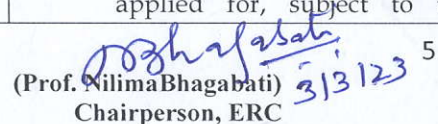 applied for, subject to
NBhagabati
5
(Prof. NilimaBhagabati) 3/3/23
Chairperson, ERC